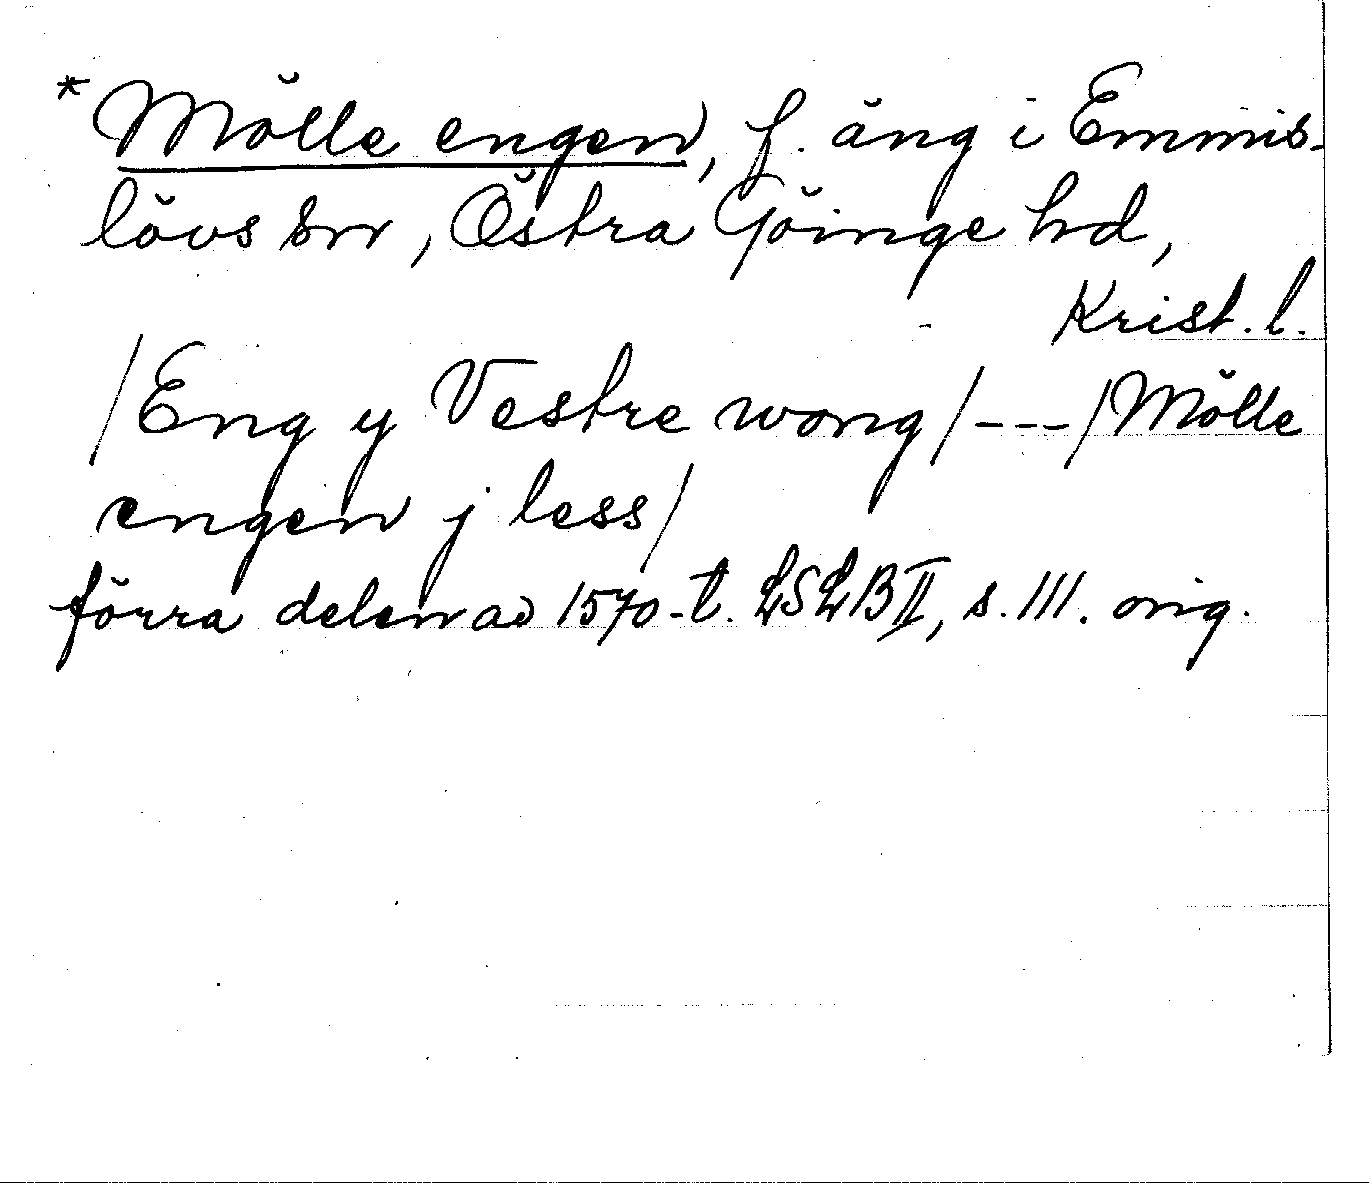 * Mölle engen, f. äng i Emmis-
lövs sn, Östra Göinge hd,
Krist. l.
/Eng y Vestre wong/---/Mölle
engen j less/
förra delen av 1570-t. LSLB II, s. 111. orig.